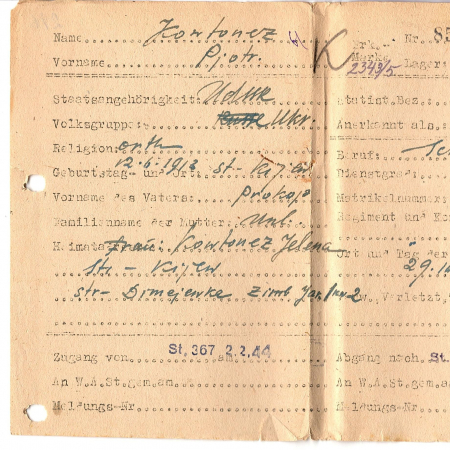 Name Kowtonez
Vorname Pjotr.
Staatsangehörigkeit:
Volksgruppe: Ukr.
Religion: orth
Geburtstag und Ort: 12.6.1913 st-Kijew
Vorname des Vaters: Prokop
Familienname der Mutter: Unb.
Heimata Frau: Kowtonez Jelena
str-Kijew
str-
Zugang von St, 367 2.2.44 am
An W.A.St.gem.am
Meldungs-Nr
K Nr. 85
Erk.-
Mark.
Lager:
2349/5
Statuint.Bez.
Anerkannt als
Beruf:
Dienstgrad:
Matrikelnummer
Regiment und Kom
Ort und Tag der
29.10
zw. Verletzt,
Abgang nach St.
An W.A.St.gem.
Meldungs-Nr